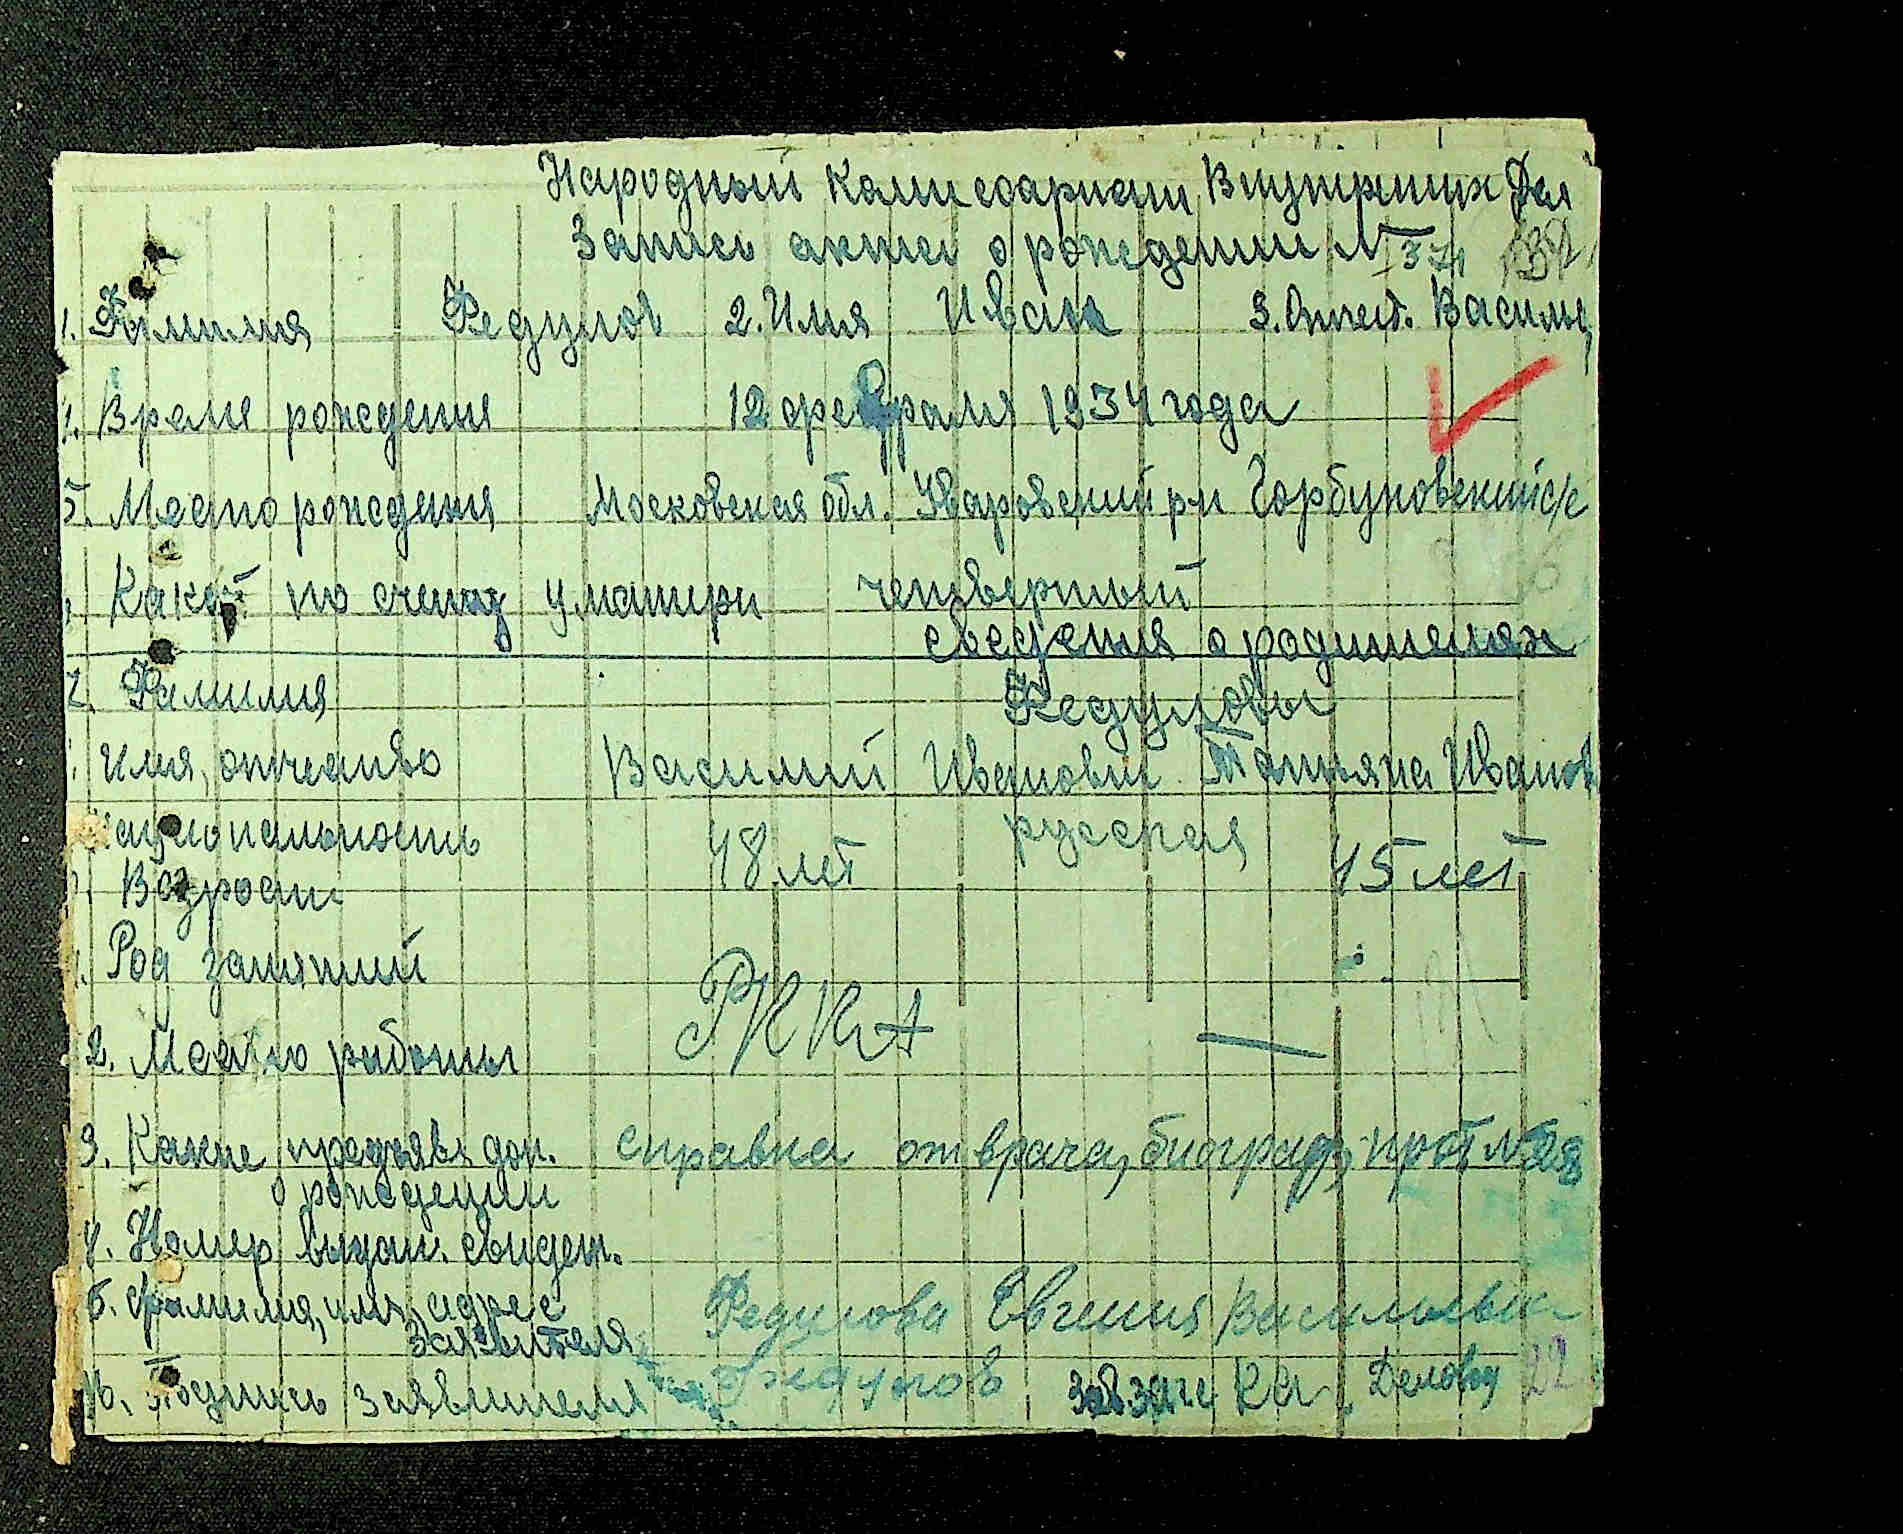 Народный Комиссариат Внутренних Дел
Запись акта о рождении № 371
1. Фамилия Федулов 2. Имя Иван 3. Отчест. Василь
4. Время рождения 12 февраля 1934 года
5. Место рождения Московская обл. Уваровский рн Горбуновский с/с
Какой по счету у матери четвертый
сведения о родителях
7. Фамилия Федуловы
имя, отчество Василий Иванович Татьяна Иванов
национальность русская
Возраст 48 лет 45 лет
Род занятий
2. Место работы РККА —
3. Какие предъяв. док. справка от врача, биограф, прот №
о рождении
4. Номер выдан. свидет.
5. Фамилия, имя, адрес Федулова Евгения Васильевна
заявителя
16. Подпись заявителя Федулов Зав. загс Делову 22